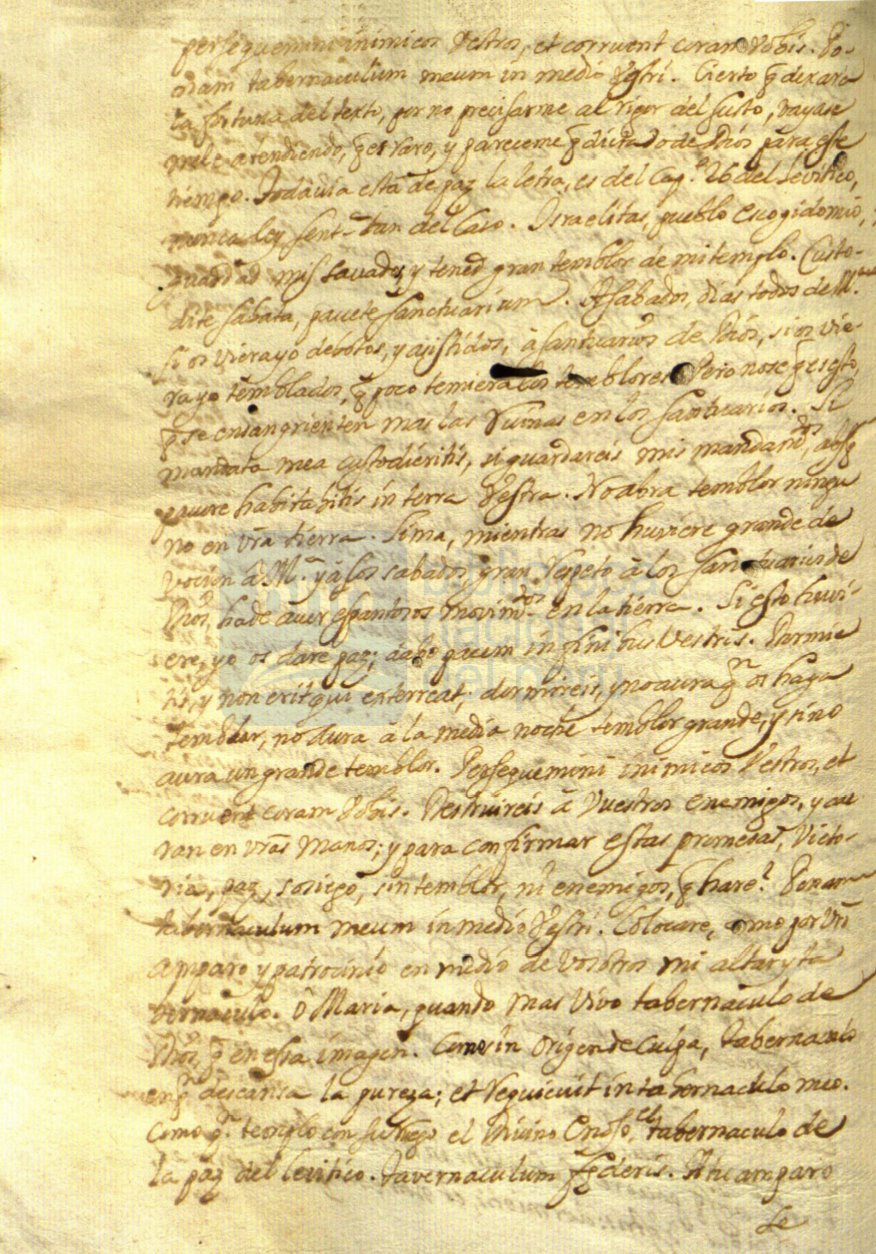 persequemini inimicos Vestros, et corruent coram Vobis. Po-
nam tabernaculum meum in medio Vestri. Cierto q dexara
la fortuna del texto, por no precisarme al rigor del susto, vayase
mele atendiendo, q es raro, y pareceme q dictado de Dios para este
tiempo. Todavia esta de paz la letra, es del Cap.º 26 del Levitico,
del Caso. Israelitas, pueblo escogido mio,
guardad mis savados, y tened gran temblor de mi templo. Custo-
dite sabata, pavete sanctuarium. A sabados, dias todos de M.ª
si os viera yo devotos, y asistidos, â santuarios de Dios, si os vie-
ra yo temblados, q poco temiera los temblores. Pero no se q es esto,
q se ensangrienten mas las Ruinas en los santuarios. Si
mandata mea custodieritis, si guardareis mis mandam.tos, absq
pavore habitabitis in terra Vestra. No abra temblor ningu
no en vra tierra. Lima, mientras no huviere grande de
vocion â M.ª y â los sabados, gran Respeto â los santuarios de
Dios, ha de aver espantosos movim.tos en la tierra. Si esto huvi-
ere, yo os dare paz; dabo pacem in finibus Vestris. Dormie
tis, y non erit qui exterreat; dormireis, y no aura qn os haga
temblar, no aura â la media noche temblor grande, y sino
aura un grande temblor. Persequemini inimicos Vestros, et
corruent coram Vobis. Destruireis â Vuestros enemigos, y cae
ran en vras manos; y para confirmar estas promesas, Victo-
ria, paz, sosiego, sin temblor, ni enemigos, q hare? Ponam
tabernaculum meum in medio Vestri. Colocare, como por vro
amparo y patrocinio en medio de vosotros mi altar y ta
bernaculo. ô Maria, quando mas vivo tabernaculo de
Dios, q en essa imagen. Como in Origen de Culpa, tabernaculo
en q descansa la pureza; et Requievit in tabernaculo meo.
Como qn templo con su el Divino Enojo, el tabernaculo de
la paz del levitico. Tavernaculum federis. A tu amparo
se